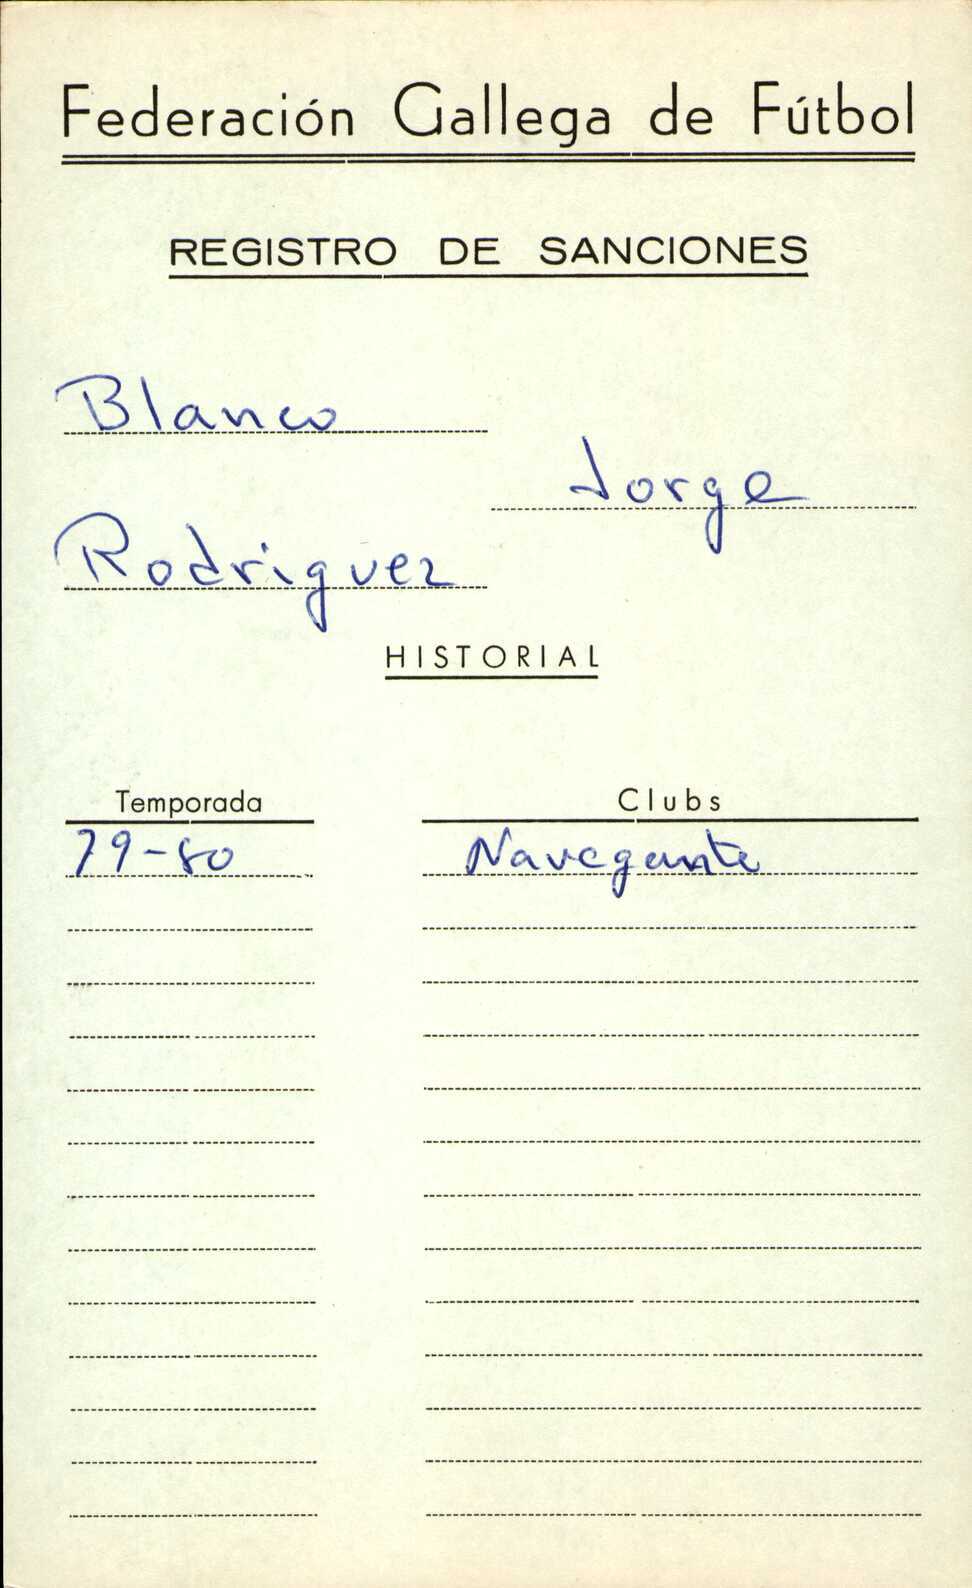 Federación Gallega de Fútbol
REGISTRO DE SANCIONES
Blanco
Jorge
Rodriguez
HISTORIAL
Temporada Clubs
79-80 Navegante